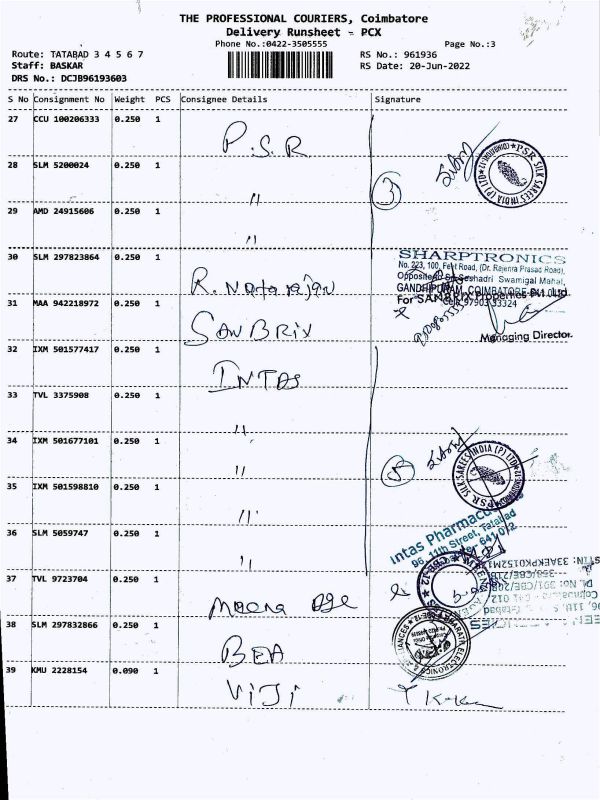 THE PROFESSIONAL COURIERS, Coimbatore
Delivery Runsheet - PCX
Phone No.:0422-3505555 Page No.:3
Route: TATABAD 3 4 5 6 7 RS No.: 961936
Staff: BASKAR RS Date: 20-Jun-2022
DRS No.: DCJB96193603
S No Consignment No Weight PCS Consignee Details Signature
27 CCU 100206333 0.250 1 P.S.R
28 SLM 5200024 0.250 1 "
3
PSR SILK SAREES INDIA (P) LTD
29 AMD 24915606 0.250 1 "
30 SLM 297823864 0.250 1 R. Natarajan
SHARPTRONICS
No. 223, 100, Feet Road, (Dr. Rajenra Prasad Road),
Opposite Seshadri Swamigal Mahal,
GANDHIPURAM, COIMBATORE
31 MAA 942218972 0.250 1 SANBRIX
For SANBRIX Properties Pvt. Ltd.
Cell: 97903 33324
Managing Director.
32 IXM 501577417 0.250 1 INTAS
33 TVL 3375908 0.250 1 "
34 IXM 501677101 0.250 1 "
5
PSR SILK SAREES INDIA (P) LTD
35 IXM 501598810 0.250 1 "
36 SLM 5059747 0.250 1 "
Intas Pharmaceu
96, 11th Street, Tatabad
641 012
37 TVL 9723704 0.250 1
38 SLM 297832866 0.250 1 BEA
BHARATH ELECTRONICS
39 KMU 2228154 0.090 1 VIJI